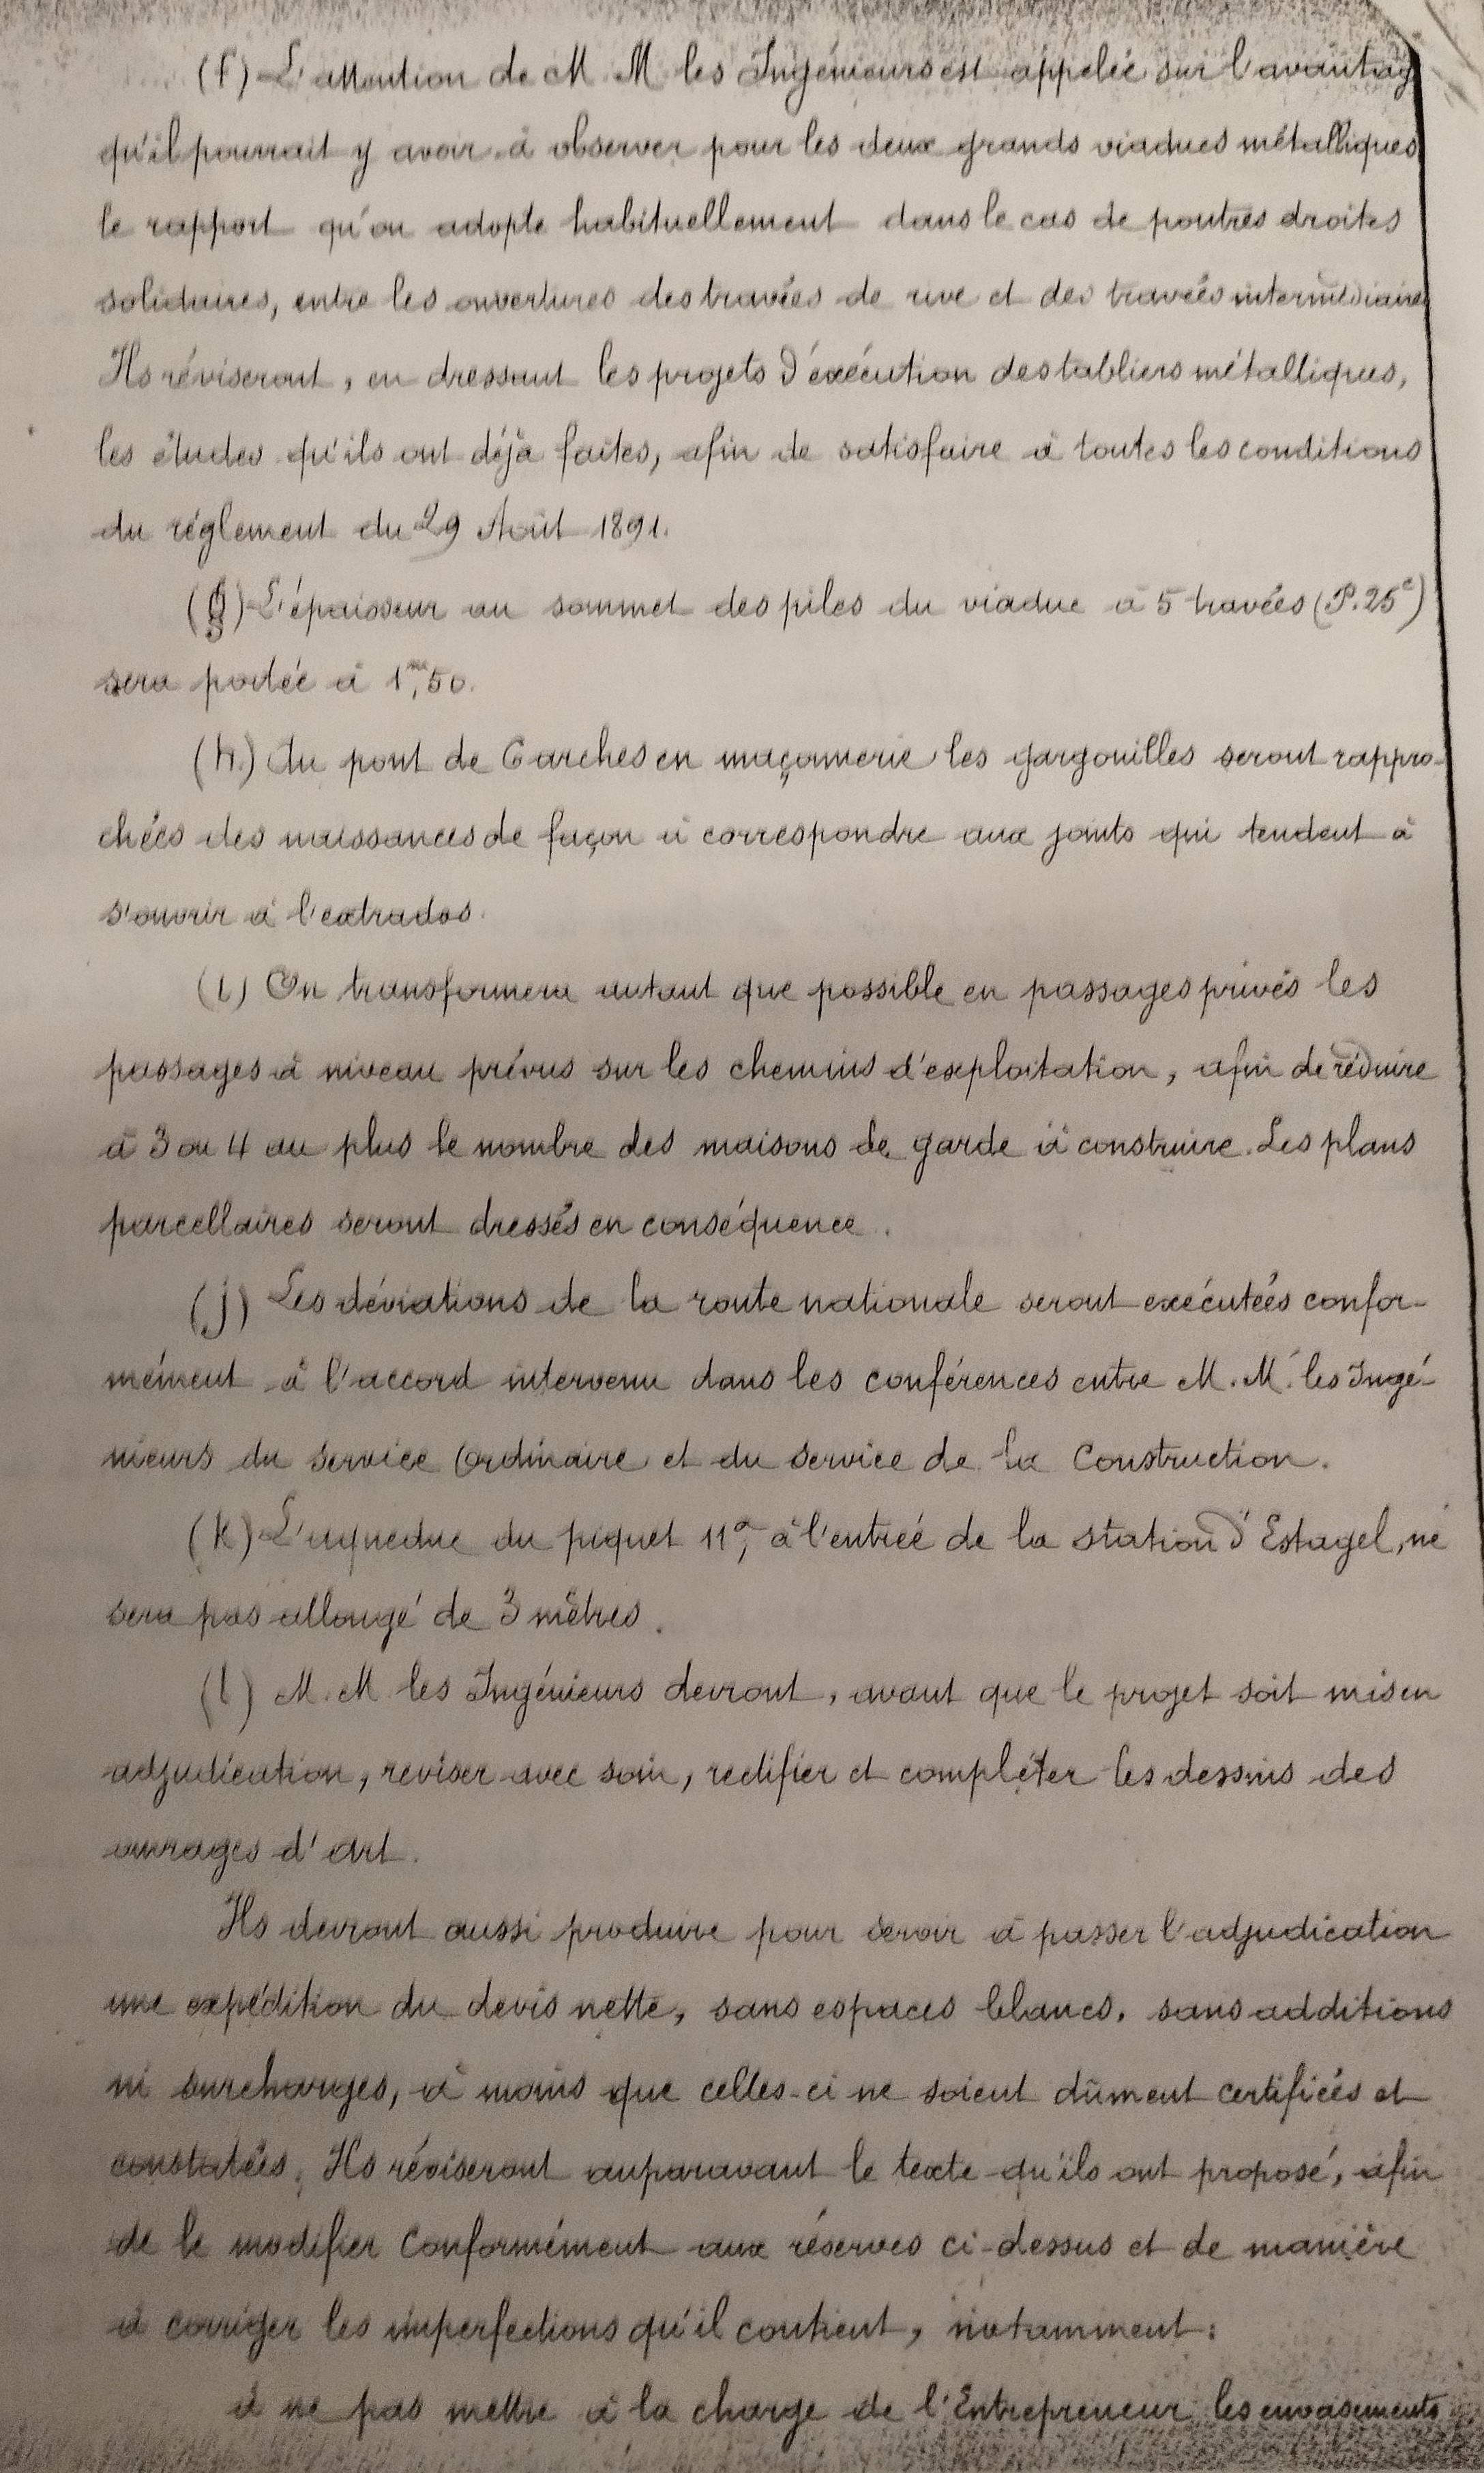 (f) L'attention de M. M les Ingénieurs est appelée sur l'avantag
qu'il pourrait y avoir à observer pour les deux grands viaducs métalliques
le rapport qu'on adopte habituellement dans le cas de poutres droites
solidaires, entre les ouvertures des travées de rive et des travées intermédiaires
Ils réviseront, en dressant les projets d'éxécution des tabliers métalliques,
les études qu'ils ont déjà faites, afin de satisfaire à toutes les conditions
du réglement du 29 Août 1891.
(g) L'épaisseur au sommet des piles du viaduc à 5 travées (P. 25e)
sera portée à 1m,50.
(h.) Au pont de 6 arches en maçonnerie les gargouilles seront rappro-
chées des naissances de façon à correspondre aux joints qui tendent à
s'ouvrir à l'extrados.
(i) On transformera autant que possible en passages privés les
passages à niveau prévus sur les chemins d'exploitation, afin de réduire
à 3 ou 4 au plus le nombre des maisons de garde à construire. Les plans
parcellaires seront dressés en conséquence.
(j) Les déviations de la route nationale seront exécutées confor-
mément à l'accord intervenu dans les conférences entre M. M. les Ingé-
nieurs du service Ordinaire et du service de la Construction.
(k) L'aqueduc du piquet 11a, à l'entrée de la station d'Estagel, ne
sera pas allongé de 3 mètres.
(l) M. M les Ingénieurs devront, avant que le projet soit mis en
adjudication, reviser avec soin, rectifier et compléter les dessins des
ouvrages d'art.
Ils devront aussi produire pour servir à passer l'adjudication
une expédition du devis nette, sans espaces blancs, sans additions
ni surcharges, à moins que celles-ci ne soient dûment certifiées et
constatées. Ils réviseront auparavant le texte qu'ils ont proposé, afin
de le modifier Conformément aux réserves ci-dessus et de manière
à corriger les imperfections qu'il contient, notamment:
à ne pas mettre à la charge de l'Entrepreneur les envasements